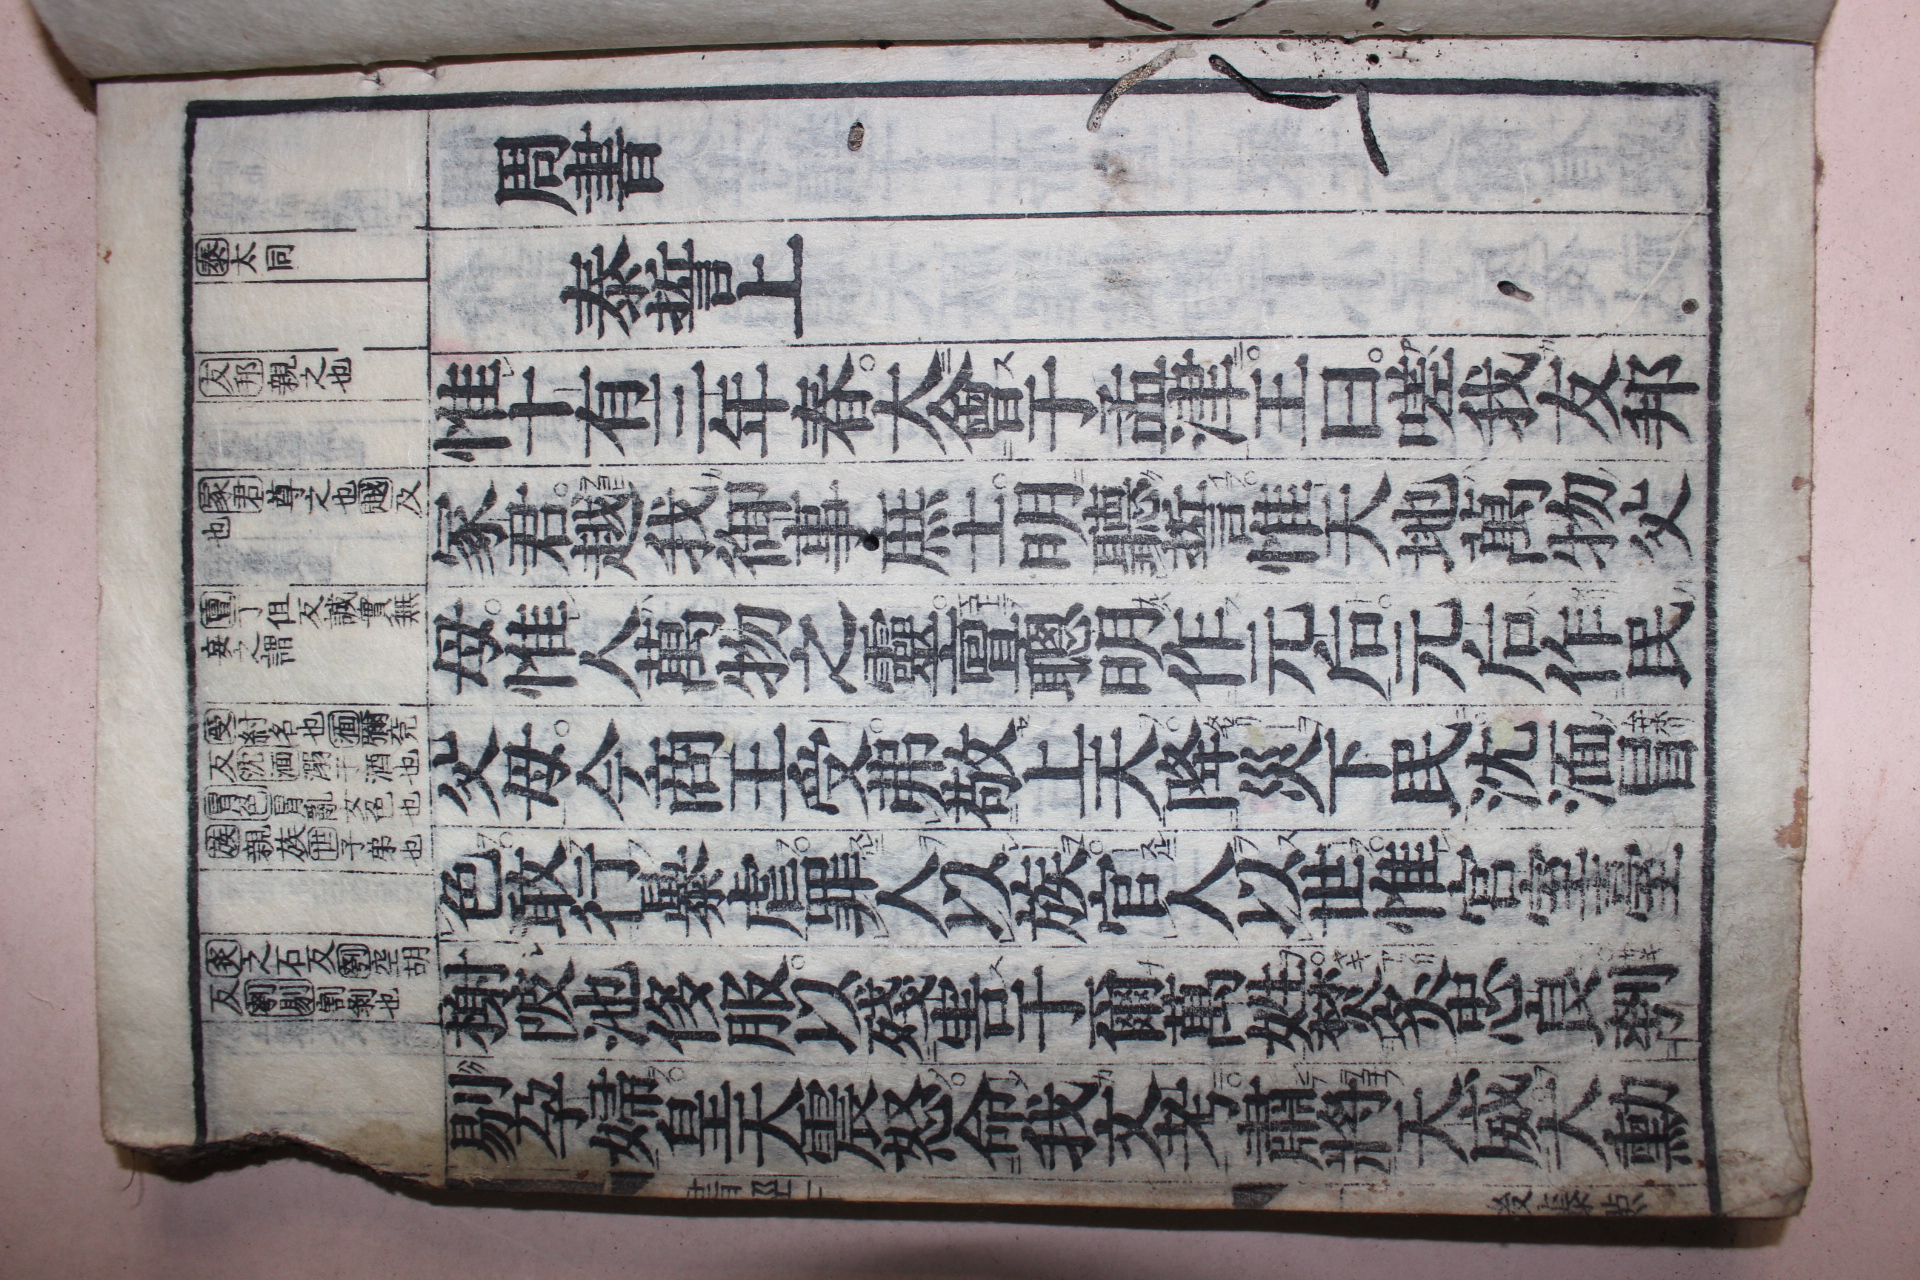 周書
泰誓上
惟十有三年春大會于孟津王曰嗟我友邦
冢君越我御事庶士明聽誓惟天地萬物父
母惟人萬物之靈亶聰明作元后元后作民
父母今商王受弗敬上天降災下民沈湎冒
色敢行暴虐罪人以族官人以世惟宮室臺
榭陂池侈服以殘害于爾萬姓焚炙忠良刳
剔孕婦皇天震怒命我文考肅將天威大勳
泰太同
友邦親之也
冢君尊之也越及
也
亶丁但反誠實無
妄之謂
受紂名也湎彌兖
反沈湎溺于酒也
冒色冒亂女色也
族親族世子弟也
炙之石反刳空胡
反刳剔割剝也
後藤点